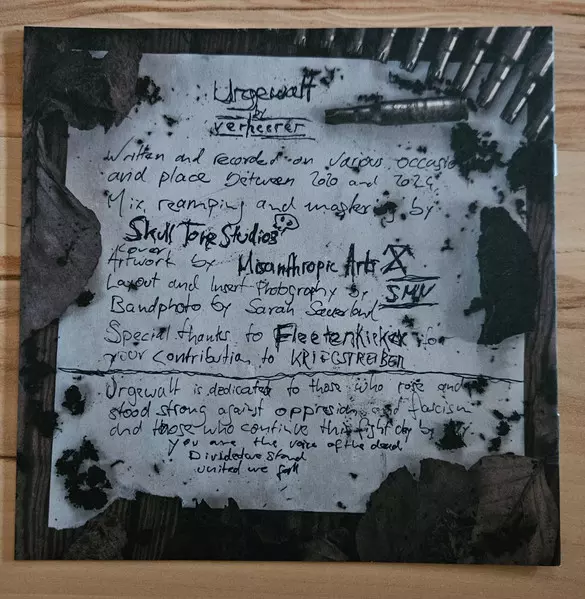 Urgewalt
by
verheerer
Written and recorded on various occasio
and place between 2020 and 2024
Mix, reamping and mastering by
Skull Tone Studios
cover
Artwork by Misanthropic Arts
Layout and Insert Photography by SMV
Bandphoto by Sarah
Special thanks to FleetenKieker for
your contribution to KRIEGSTREIBER
Urgewalt is dedicated to those who rose and
stood strong against oppresion and fascism
and those who continue this fight day by day.
you are the voice of the dead
Divided we stand
united we fall